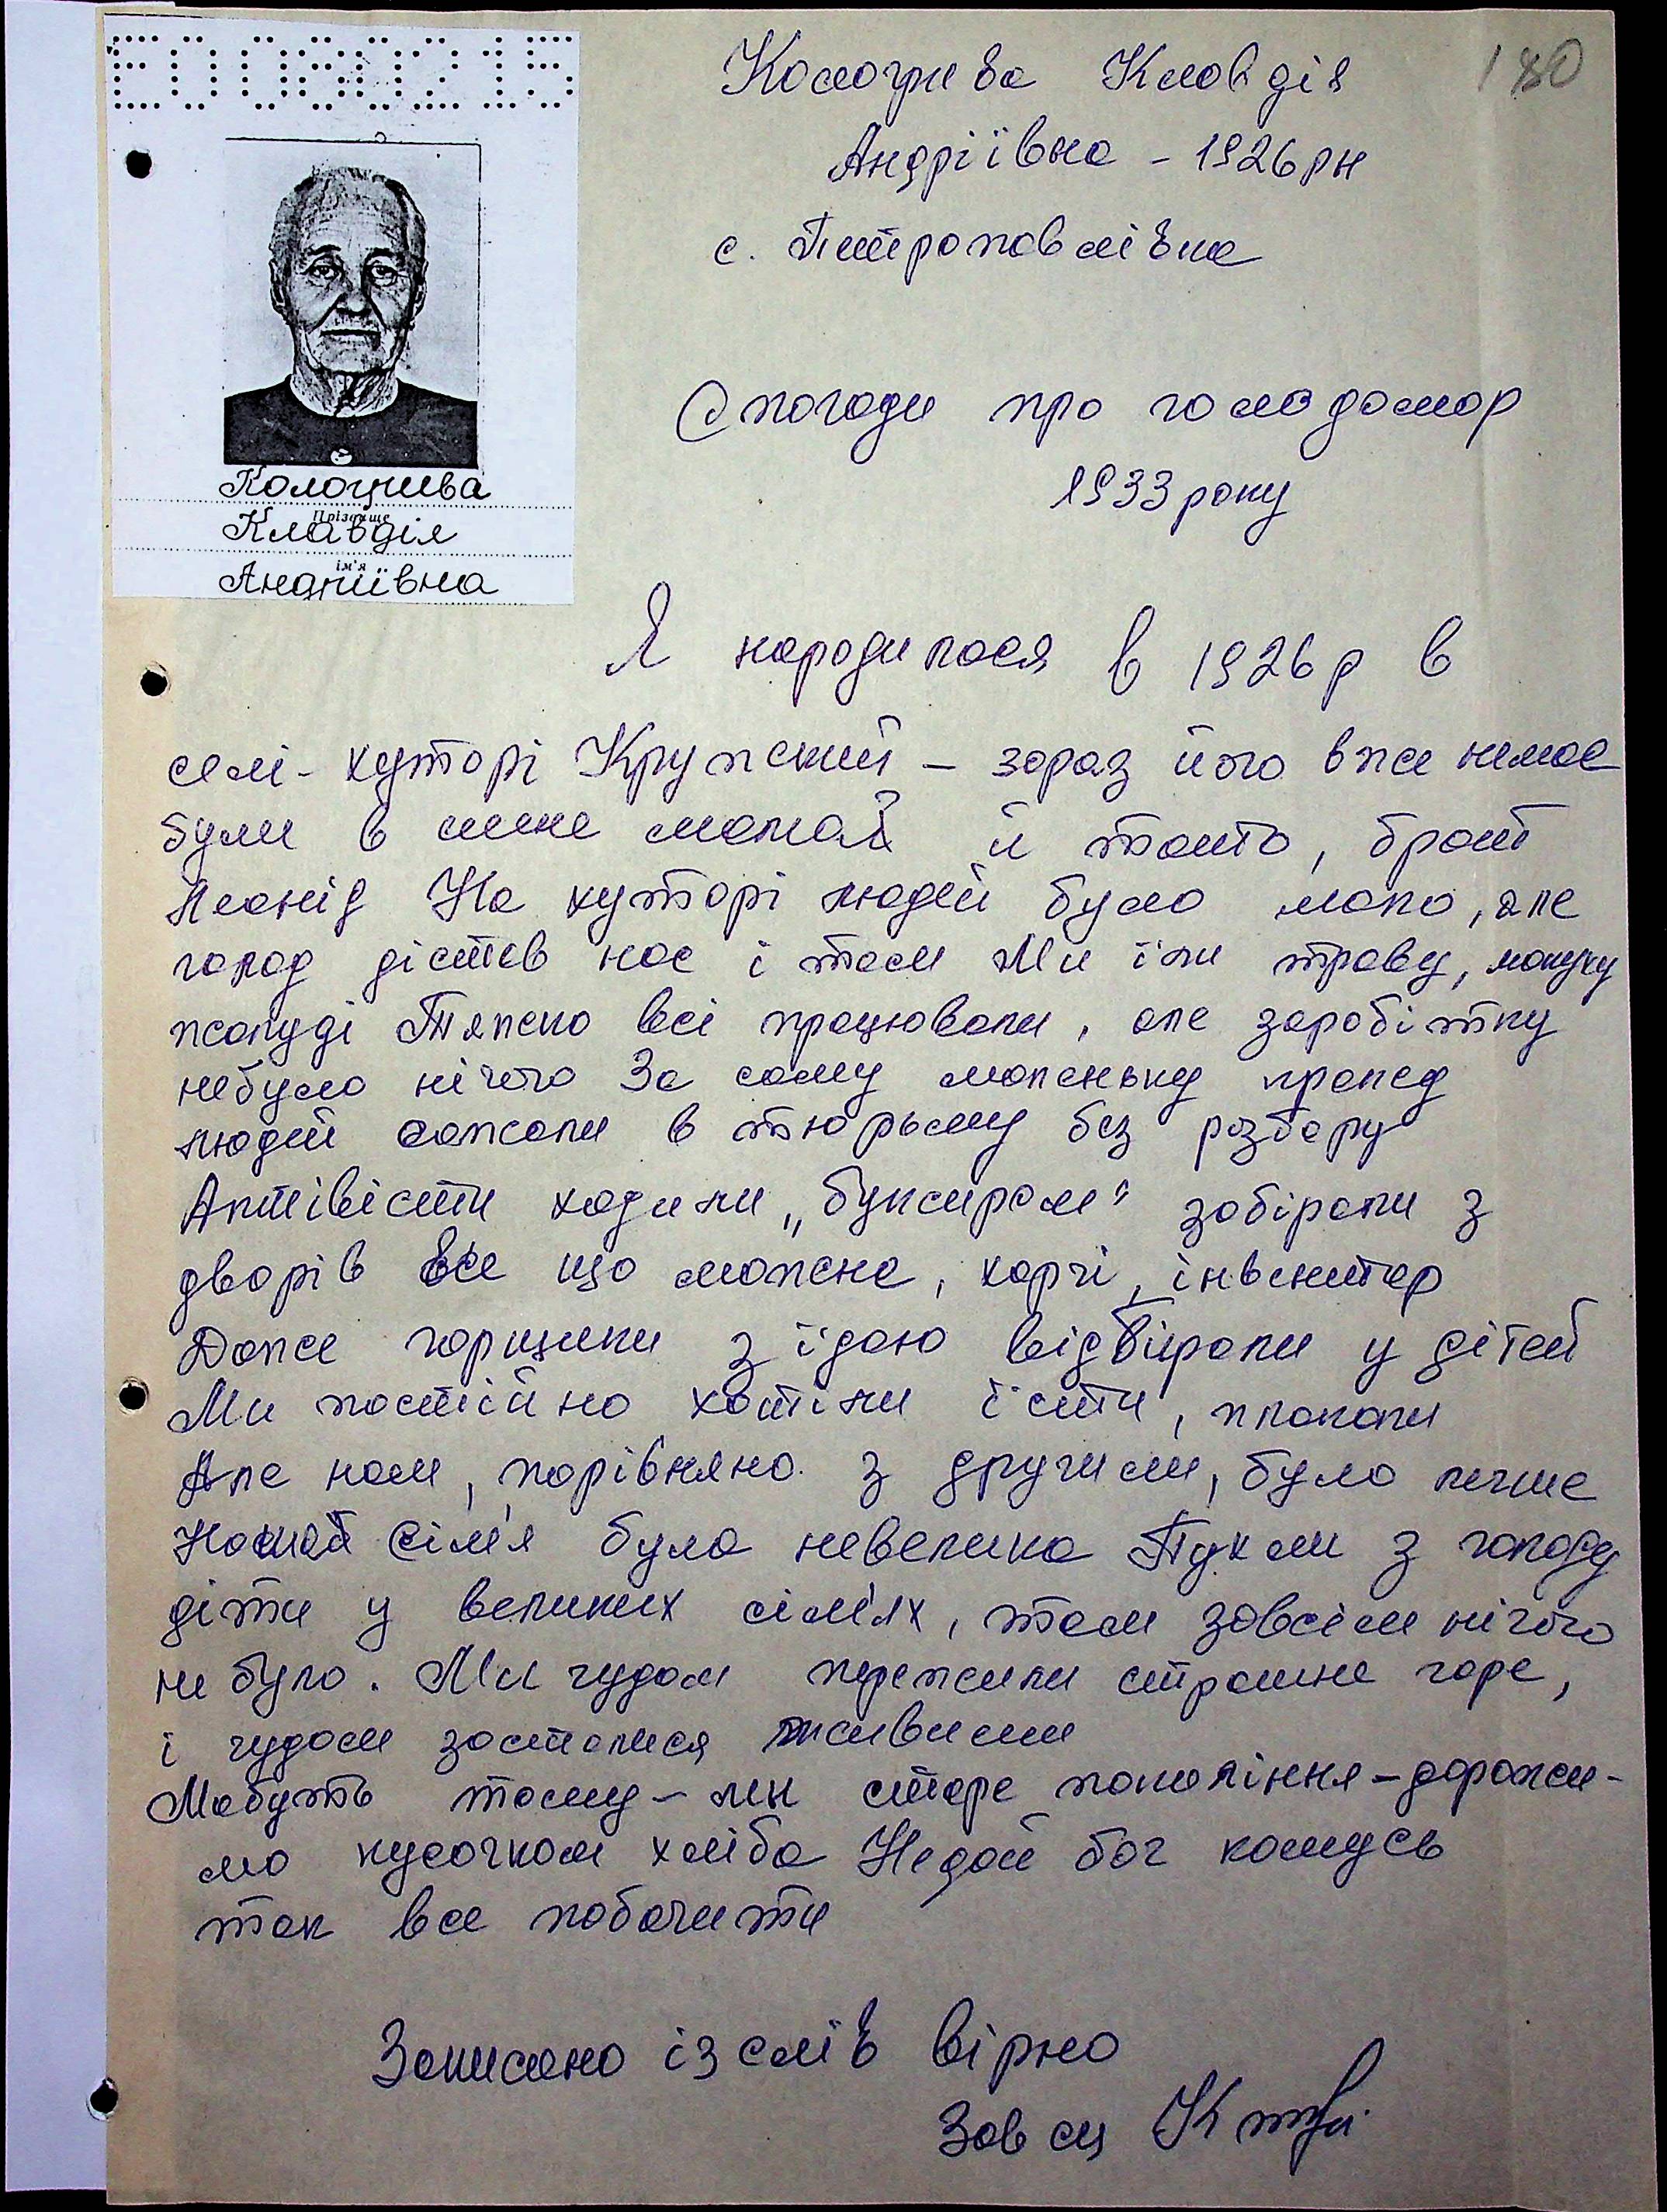 180
ЕО080215
Кологрива Клавдія
Андріївна - 1926 рн
с. Петропавлівка
Кологрива
Прізвище
Клавдія
ім'я
Андріївна
Спогади про голодомор
1933 року
Я народилася в 1926 р в
селі- хуторі Кружский – зараз його вже немає
були в мене мама й тато, брат
Леонід На хуторі людей було мало, але
голод дістав нас і там Ми їли траву, макуху
жолуді Тяжко всі працювали, але заробітку
небуло нічого За саму маленьку кражд
людей сажали в тюрьму без розбору
Актівісти ходили „буксиром" забірали з
дворів все що можна, харчі, інвентар
Даже горщики з їдою відбирали у дітей
Ми постійно хотіли їсти, плакали
Але нам, порівняно з другими, було легше
Наша сім'я була невелика Пухли з голоду
діти у великих сім'ях, там зовсім нічого
не було. Ми чудом пережили страшне горе,
і чудом зосталися живими
Мабуть тому – ми старе покоління – дорожи-
мо кусочком хліба Недай бог комусь
так все побачити
Записано із слів вірно
Зав сц